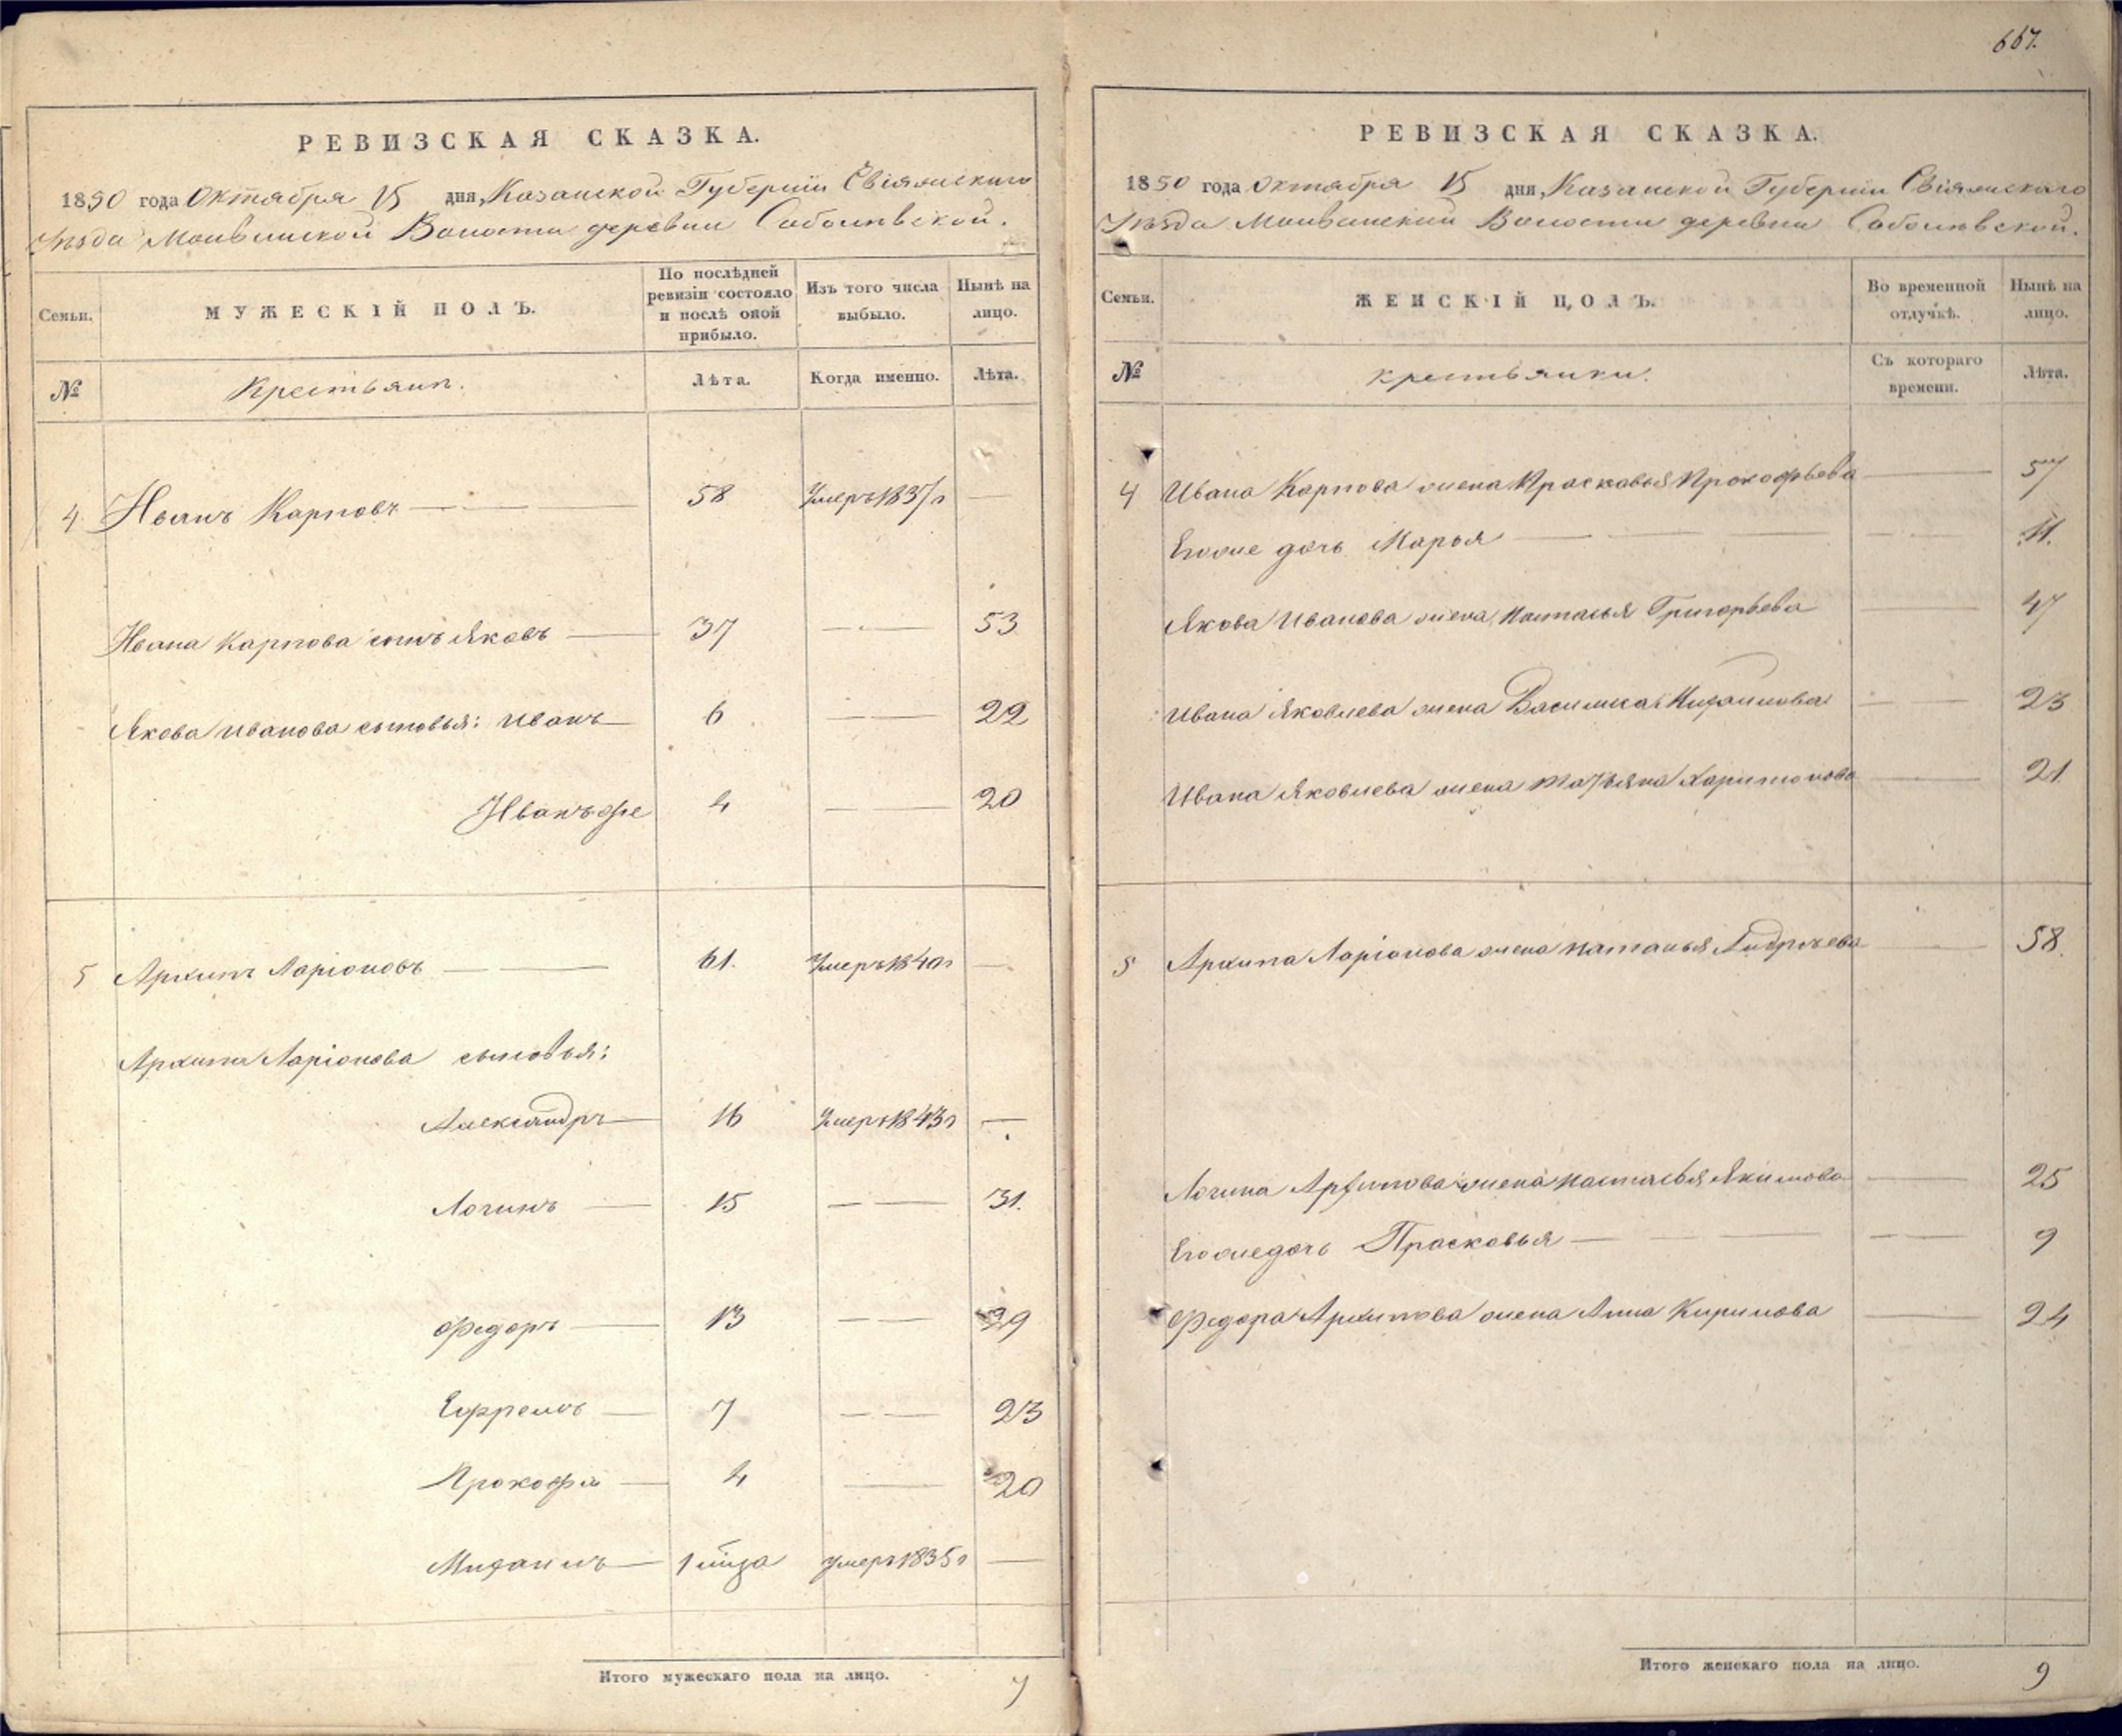 667.
РЕВИЗСКАЯ СКАЗКА.
1850 года Октября 15 дня, Казанской Губерніи Свіяжскаго
Уѣзда Волости деревни Соболевской.
Семьи. МУЖЕСКІЙ ПОЛЪ. По послѣдней ревизіи состояло и послѣ оной прибыло. Изъ того числа выбыло. Нынѣ на лицо.
№ Крестьянъ. Лѣта. Когда именно. Лѣта.
4 Иванъ Карповъ 58 Умеръ 1837 г —
Ивана Карпова сынъ Яковъ 37 — 53
Якова Иванова сыновья: Иванъ 6 — 22
Иванъ же 4 — 20
5 Архипъ Ларіоновъ 61. Умеръ 1840 г —
Архипа Ларіонова сыновья:
Александръ 16 Умеръ 1843 г —
Логинъ 15 — 31.
Федоръ 13 — 29
Ефремъ 7 — 23
Прокофій 4 — 20
Михаилъ 1 умеръ 1835 г —
Итого мужескаго пола на лицо. 7
РЕВИЗСКАЯ СКАЗКА.
1850 года Октября 15 дня, Казанской Губерніи Свіяжскаго
Уѣзда Волости деревни Соболевской.
Семьи. ЖЕНСКІЙ ПОЛЪ. Во временной отлучкѣ. Нынѣ на лицо.
№ Крестьянки. Съ котораго времени. Лѣта.
4 Ивана Карпова жена Прасковья Прокофьева — 57
Его же дочь Марья — 11.
Якова Иванова жена Настасья Григорьева — 47
Ивана Яковлева жена Василиса Михаилова — 23
Ивана Яковлева жена Татьяна Харитонова — 21
5 Архипа Ларіонова жена Наталья Андреева — 58.
Логина Архипова жена Настасья Якимова — 25
Его же дочь Прасковья — 9
Федора Архипова жена Анна Кирилова — 24
Итого женскаго пола на лицо. 9